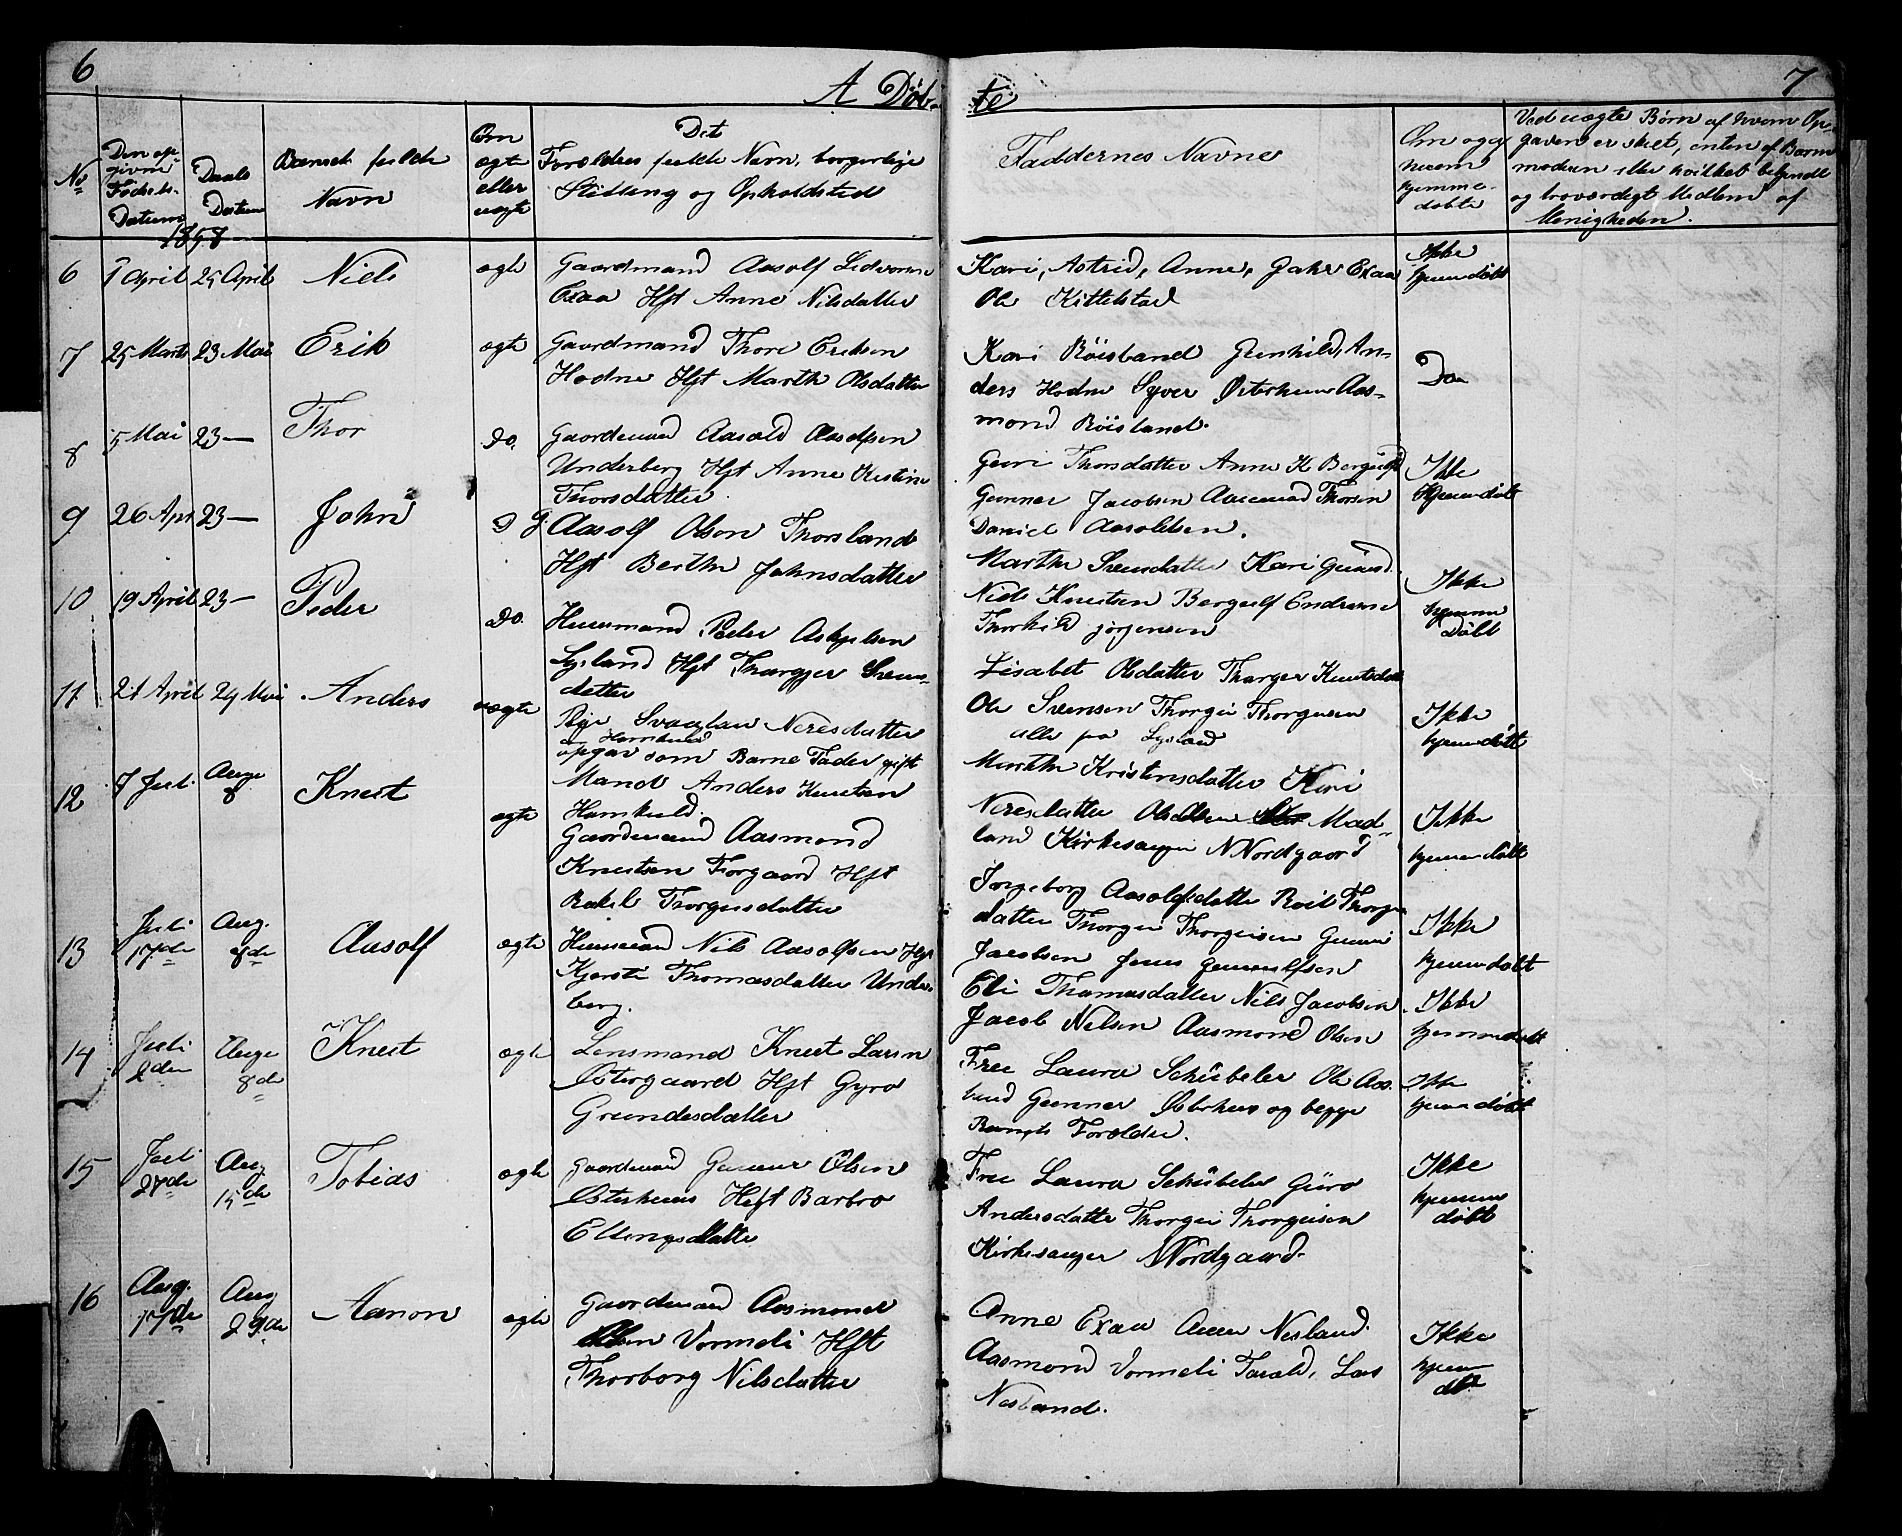 6
A Døb
te
7
No
Den op
givne
Fødsels-
Datum
Daabs
Datum
Barnets fulde
Navn
Om
ægte
eller
uægte
Det
Forældres fulde Navn, borgerlige
Stilling og Opholdsted
Faddernes Navne
Om og af
hvem
hjemme-
døbte
Ved uægte Børn af hvem Op-
gaven er skeet, enten af Barne
moderen eller hvilket bekjendt
og troværdigt Medlem af
Menigheden.
1858
6 April 25 April Niels ægte Gaardmand Aasolf
Exaa Hft Anne Nilsdatter
Kari, Astrid, Anne, Exaa
Ole Kittelstad
Ikke
hjemdøbt
7 25 Marts 23 Mai Erik ægte Gaardmand Thore Eriksen
Hodne Hft Marthe Olsdatter
Kari Röisland Gunhild, An-
ders Hodne Syver Østerhuus Aas-
mond Röisland.
Do
8 5 Mai 23 — Thor Do. Gaardmand Aasold Aasolfsen
Underberg Hft Anne Kirstine
Thorsdatter
Guri Thorsdatter Anne K
Gunner Jacobsen Aasmund Thorsen
Daniel Aasoldsen.
Ikke
hjemdøbt
9 26 Apr 23 — John D G Aasolf Olson Thorsland
Hft Berthe Johnsdatter
Marthe Svensdatter Kari
Niels Knutsen Bergulf Endresen
Thorkild Jörgensen
Ikke
hjemme
Døbt
10 19 April 23 — Peder Do. Huusmand Peder Askjelsen
Lysland Hft Thorgjer Svens-
datter
Lisabet Olsdatter Thorger Knutsdatter
Ole Svensen Thorgei Thorgeisen
alle paa Lysland
Ikke
hjemdøbt
11 21 April 24 Mai Anders uægte Pige Svanlau Neresdatter
Homkuld
opgav som Barne Fader gift
Mand Anders Knutsen
Homkuld.
Marthe Kristensdatter Kari
Neresdatter Mad-
land Kirkesanger N Nordgaard
Ikke
hjemdøbt
12 7 Juli Aug
8 Knut ægte Gaardmand Aasmond
Knutsen Forgaard Hft
Rakel Thorgeisdatter
Ingeborg Aasolfsdatter Thorgei
datter Thorger Thorgeisen Gunner
Jacobsen Jens Gunnulfsen
Ikke
hjemdøbt
13 Juli
17de Aug.
8de Aasolf ægte Huusmand Nils Aasolfsen Hft
Kjersti Thomasdatter Under-
berg.
Eli Thomasdatter Nils Jacobsen
Jacob Nelsen Aasmond Olsen
Ikke
hjemmedøbt
14 Juli
2den Aug
8de Knut ægte Lensmand Knut Larsen
Ostergaard Hft Gyro
Grundesdatter
Frue Laura Schübeler Ole Aas-
lund Gunner Østerhus og begge
Barnets Forældre.
Ikke
hjemdøbt
15 Juli
27de Aug
15de Tobias ægte Gaardmand Gunner Olsen
Osterhuus Hft Barbro
Ellingsdatter
Frue Laura Schübeler Güro
Andersdatter Thorgei Thorgeisen
Kirkesanger N Nordgaard.
Ikke
hjemme
døbt
16 Aug.
17de Aug
29de Aanon ægte Gaardmand Aasmond
Olsen Vormeli Hft
Thorborg Nilsdatter
Anne Exaa Anne Nesland
Aasmond Vormeli Tarald, Lars
Nesland.
Ikke
hjem
døbt